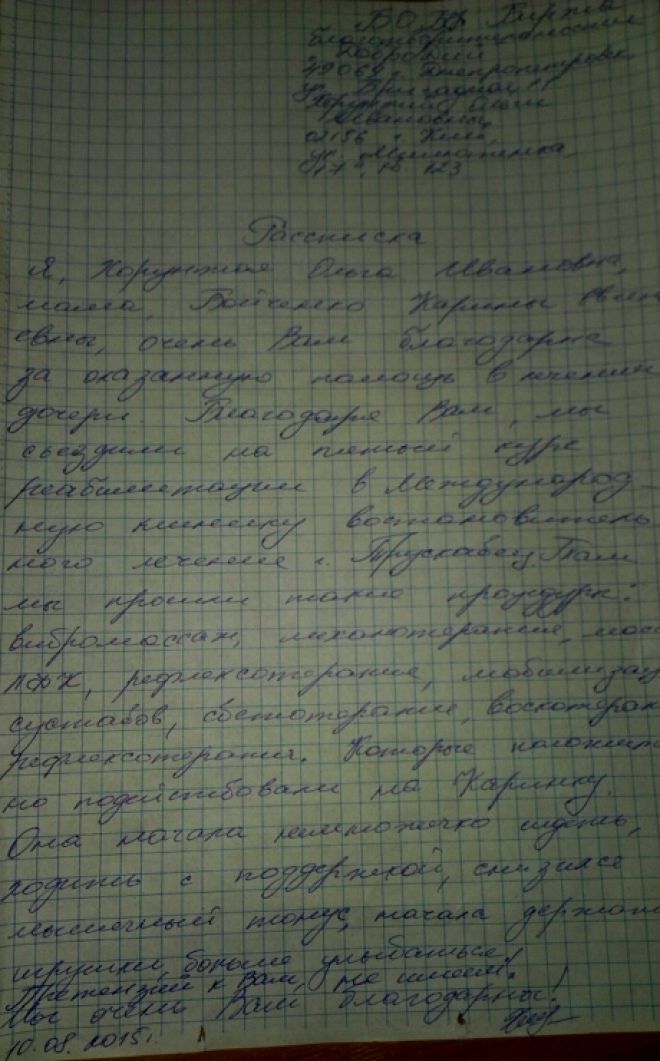 БОБФ Биржа
благотворительности
Добродий
49064 г. Днепропетровск
ул. Бригадная 11
Хорунжий Ольги
Ивановны
02156 г. Киев,
ул.
17, кв. 123
Расписка
Я, Хорунжая Ольга Ивановна,
мама, Войченко Карины Евген
евны, очень Вам благодарна
за оказанную помощь в лечении
дочери. Благодаря Вам, мы
съездили на пятый курс
реабилитации в Международ-
ную клинику востановитель
ного лечения г. Трускавец. Там
мы прошли такие процедуры:
вибромассаж, механотерапие, масс
ЛФК, рефлексотерапие, мобилизац
суставов, светотерапие, воскотерап
рефлексотерапия. Которые положит
но подействовали на Каринку.
Она начала немножечко сидеть,
ходить с поддержкой, снизился
мышечный тонус, начала держать
игрушки, больше улыбаться!
Притензий к Вам, не имеем!
Мы очень Вам благодарны!
10.08.2015г.